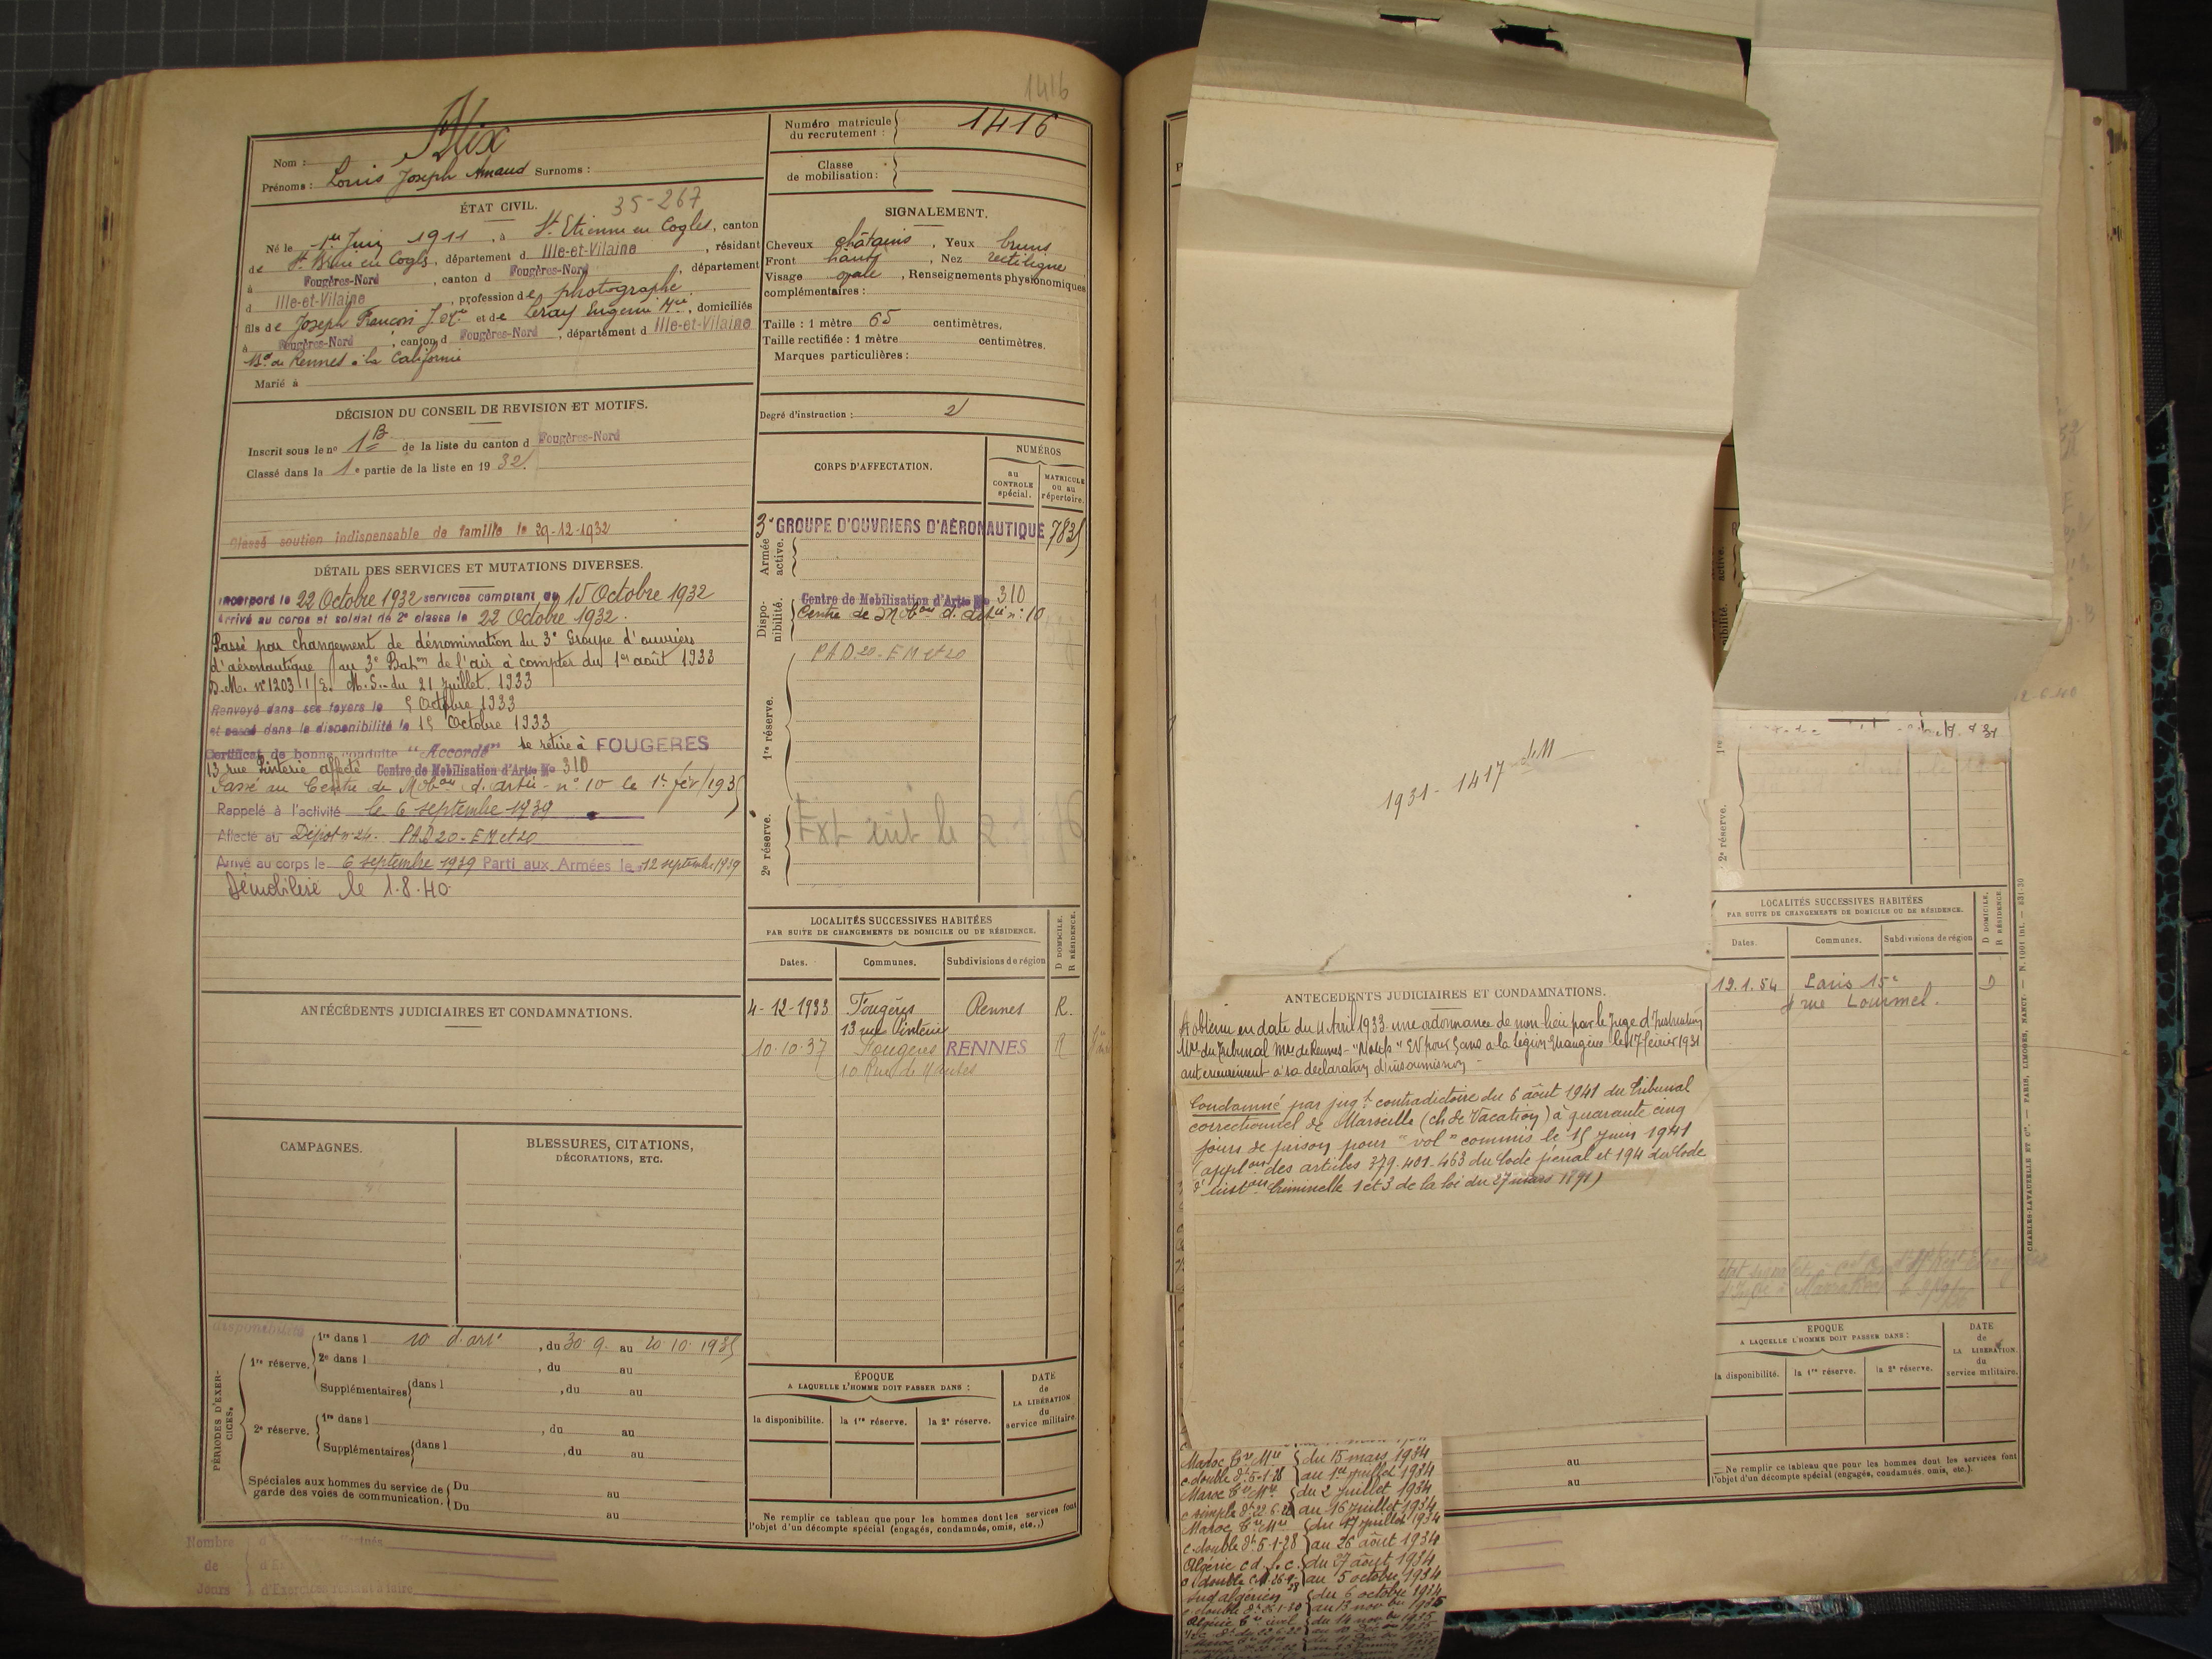 1416
Nom : Blix
Prénoms : Louis Joseph Amand Surnoms :
Numéro matricule du recrutement : 1416
Classe de mobilisation :
ÉTAT CIVIL.
35-267
Né le 1er Juin 1911, à St Etienne en Cogles, canton
de St Brice en Cogles, département d Ille-et-Vilaine, résidant
à Fougères-Nord, canton d Fougères-Nord, département
d Ille-et-Vilaine, profession de photographe
fils de Joseph François et de Leray Eugénie Mie, domiciliés
à Fougères-Nord, canton d Fougères-Nord, département d Ille-et-Vilaine
Bd de Rennes à la Californie
Marié à
SIGNALEMENT.
Cheveux châtains, Yeux bruns
Front haut, Nez rectiligne
Visage ovale, Renseignements physionomiques
complémentaires :
Taille : 1 mètre 65 centimètres.
Taille rectifiée : 1 mètre centimètres.
Marques particulières :
Degré d'instruction : 2
DÉCISION DU CONSEIL DE REVISION ET MOTIFS.
Inscrit sous le no 1 B de la liste du canton d Fougères-Nord
Classé dans la 1e partie de la liste en 1932.
Classé soutien indispensable de famille le 29-12-1932
DÉTAIL DES SERVICES ET MUTATIONS DIVERSES.
Incorporé le 22 Octobre 1932 services comptant du 15 Octobre 1932
Arrivé au corps et soldat de 2e classe le 22 Octobre 1932.
Passé par changement de dénomination du 3e Groupe d'ouvriers
d'aéronautique au 3e Baton de l'air à compter du 1er août 1933
D.M. no 1203 1/E. M.G. du 21 Juillet 1933
Renvoyé dans ses foyers le 5 Octobre 1933
et passé dans la disponibilité le 15 Octobre 1933
Certificat de bonne conduite "Accordé" se retire à FOUGERES
13 rue Pinterie affecté Centre de Mobilisation d'Artie No 310
Passé au Centre de Mobon d'artie no 10 le 1er fév 1935
Rappelé à l'activité le 6 septembre 1939
Affecté au Dépot no 24. PAD 20 - EM et 20
Arrivé au corps le 6 septembre 1939 Parti aux Armées le 12 septembre 1939
Démobilisé le 1.8.40
CORPS D'AFFECTATION.
NUMÉROS
au CONTROLE spécial.
MATRICULE ou au répertoire.
Armée active.
3e GROUPE D'OUVRIERS D'AÉRONAUTIQUE 7835
Disponibilité.
Centre de Mobilisation d'Artie No 310
Centre de Mobon d'artie no 10
1re réserve.
PAD 20 - EM et 20
2e réserve.
LOCALITÉS SUCCESSIVES HABITÉES
PAR SUITE DE CHANGEMENTS DE DOMICILE OU DE RÉSIDENCE.
D DOMICILE.
R RÉSIDENCE.
Dates. Communes. Subdivisions de région
4-12-1933 Fougères Rennes R.
13 rue Pinterie
10.10.37 Fougères RENNES R
10 Rue de Nantes
ANTÉCÉDENTS JUDICIAIRES ET CONDAMNATIONS.
CAMPAGNES.
BLESSURES, CITATIONS,
DÉCORATIONS, ETC.
PÉRIODES D'EXERCICES.
disponibilité
1re réserve.
1re dans l 10 d'art, du 30.9. au 20.10.1935
2e dans l , du au
Supplémentaires dans l , du au
2e réserve.
1re dans l , du au
Supplémentaires dans l , du au
Spéciales aux hommes du service de
garde des voies de communication.
Du au
Du au
ÉPOQUE
A LAQUELLE L'HOMME DOIT PASSER DANS :
la disponibilite. la 1re réserve. la 2e réserve.
DATE de LA LIBÉRATION du service militaire.
Ne remplir ce tableau que pour les hommes dont les services font
l'objet d'un décompte spécial (engagés, condamnés, omis, etc.,)
Nombre
de
Jours
d'Exercices restant à faire
1931 - 1417
ANTECEDENTS JUDICIAIRES ET CONDAMNATIONS.
A obtenu en date du 4 Avril 1933 une ordonnance de non-lieu par le Juge d'Instruction
Mre du Tribunal Mre de Rennes - EV pour 5 ans à la légion étrangère le 17 février 1931
antérieurement à sa déclaration d'insoumission
Condamné par jugt contradictoire du 6 août 1941 du Tribunal
correctionnel de Marseille (ch de Vacation) à quarante cinq
jours de prison pour "vol" commis le 15 Juin 1941
(applon des articles 379-401-463 du Code pénal et 194 du Code
d'inston Criminelle 1 et 3 de la loi du 27 mars 1891)
Maroc du 15 mars 1934
c double dt 5-1-28 au 1er juillet 1934
Maroc du 2 Juillet 1934
c simple dt 22.6.22 au 16 juillet 1934
Maroc du 17 juillet 1934
c. double dt 5-1-28 au 26 août 1934
Algérie du 27 août 1934
c double au 5 octobre 1934
sud algérien du 6 octobre 1934
2e réserve.
LOCALITÉS SUCCESSIVES HABITÉES
PAR SUITE DE CHANGEMENTS DE DOMICILE OU DE RÉSIDENCE.
D DOMICILE.
R RÉSIDENCE
Dates. Communes. Subdivisions de région
19.1.54 Paris 15e D
rue Lourmel.
EPOQUE
A LAQUELLE L'HOMME DOIT PASSER DANS :
la disponibilité. la 1re réserve. la 2e réserve.
DATE de LA LIBÉRATION. du service militaire.
au
au
Ne remplir ce tableau que pour les hommes dont les services font
l'objet d'un décompte spécial (engagés, condamnés, omis, etc.).
CHARLES-LAVAUZELLE ET Cie. — PARIS, LIMOGES, NANCY